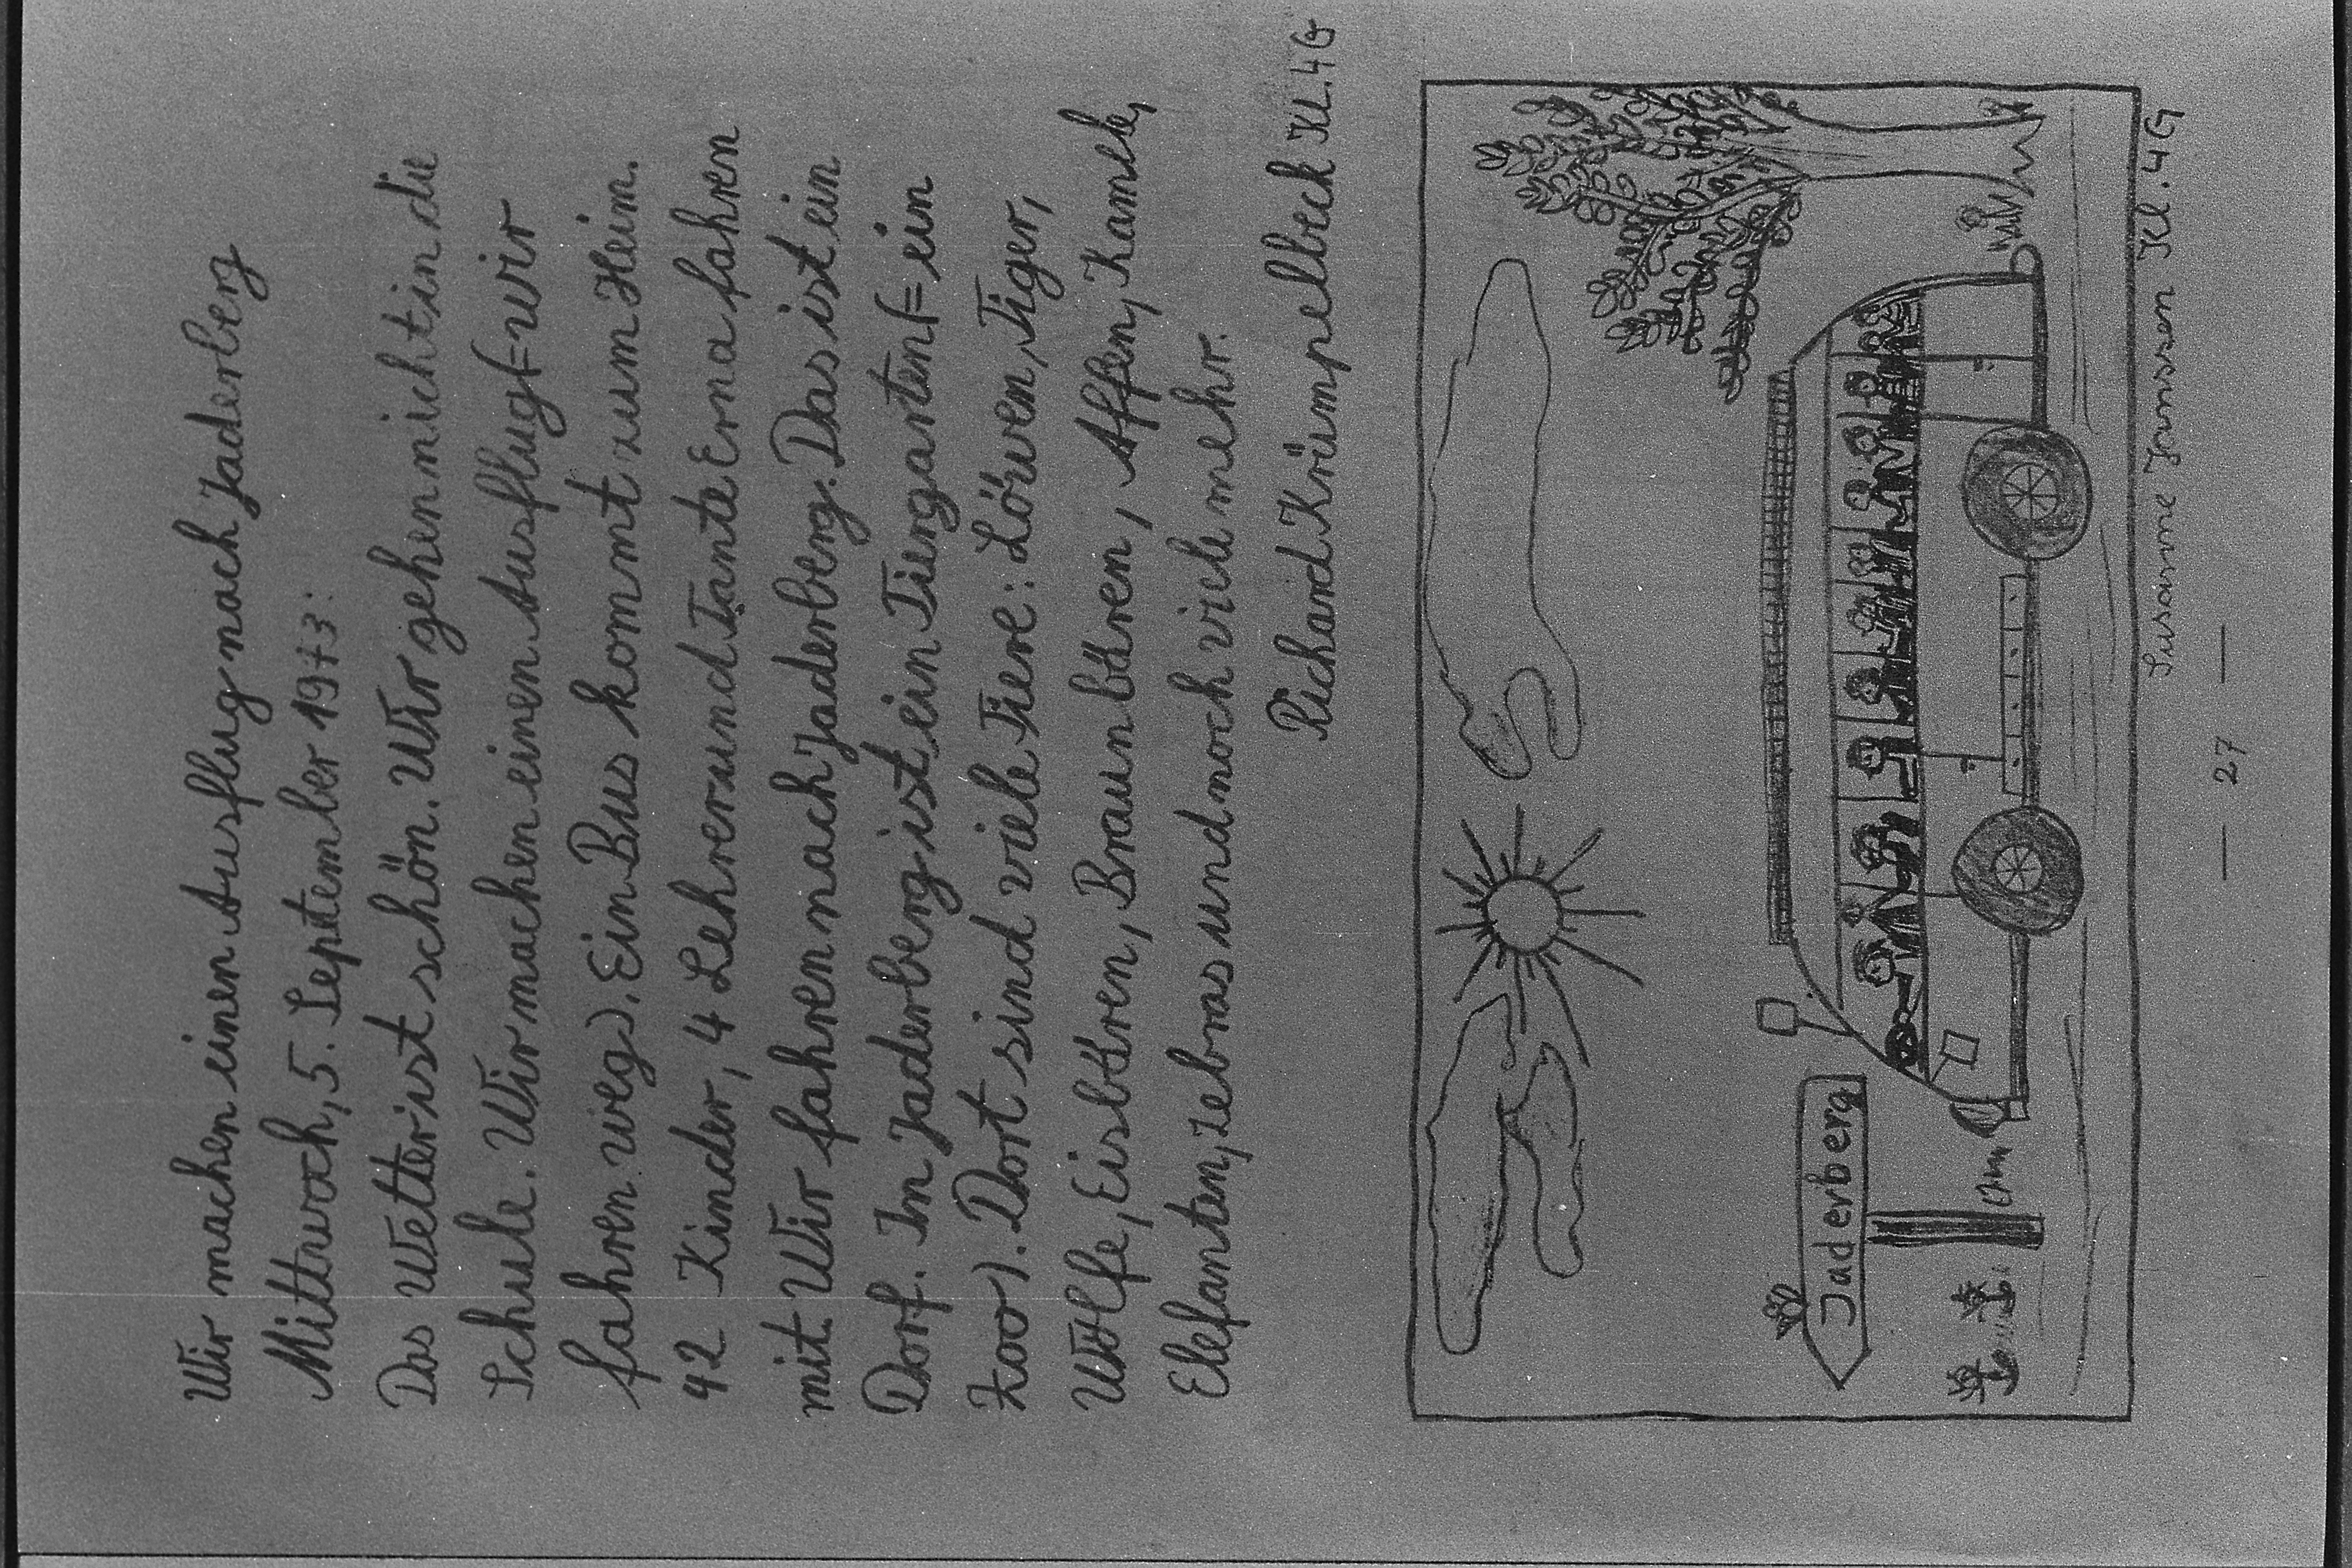 Wir machen einen Ausflug nach Jaderberg
Mittwoch, 5. September 1973:
Das Wetter ist schön. Wir gehen nicht in die
Schule. Wir machen einen Ausflug (= wir
fahren weg). Ein Bus kommt zum Heim.
42 Kinder, 4 Lehrer und Tante Erna fahren
mit. Wir fahren nach Jaderberg. Das ist ein
Dorf. In Jaderberg ist ein Tiergarten (= ein
Zoo). Dort sind viele Tiere: Löwen, Tiger,
Wölfe, Eisbären, Braunbären, Affen, Kamele,
Elefanten, Zebras und noch viele mehr.
Richard Krümpelbeck Kl. 4G
Jaderberg
Susanne Janssen Kl. 4G
— 27 —